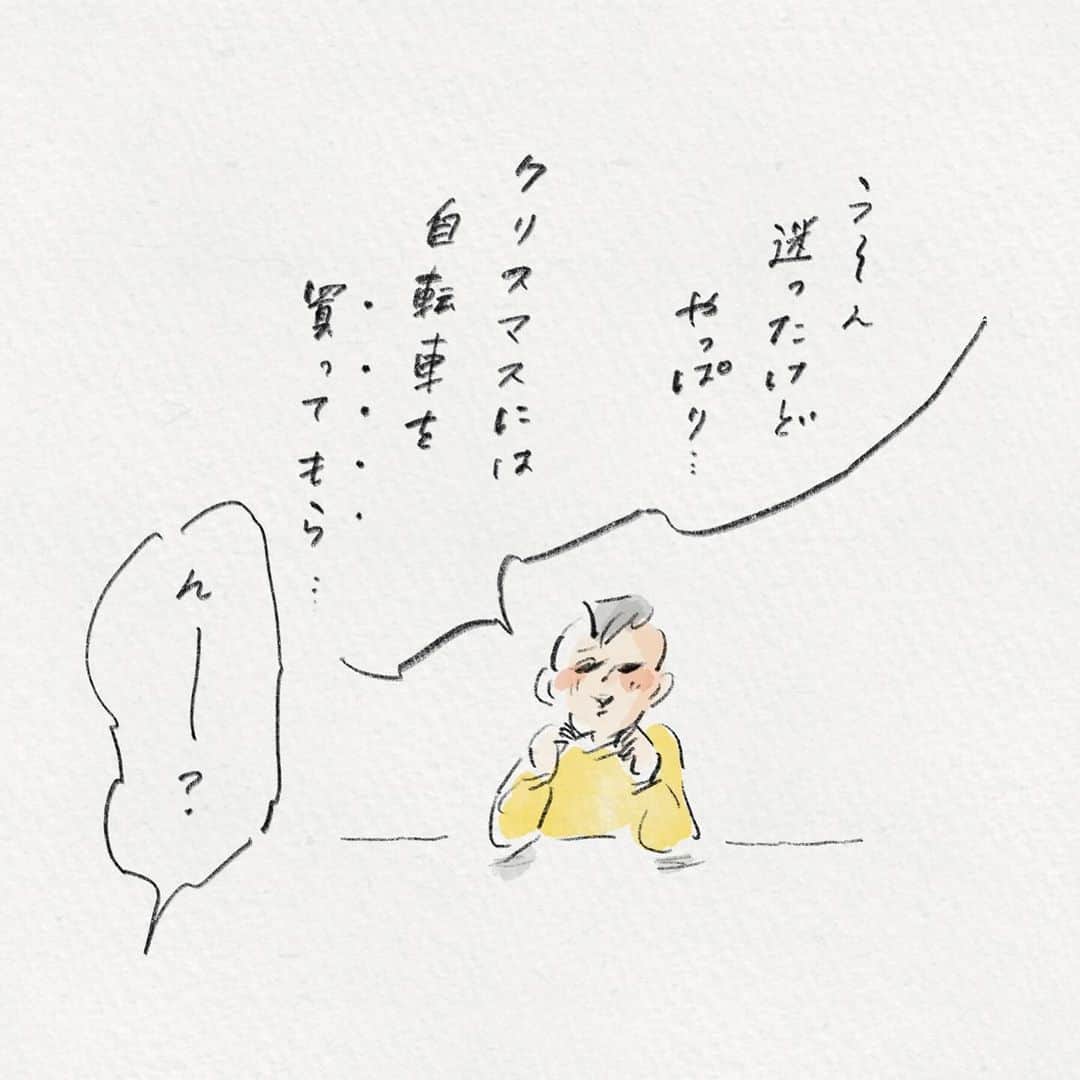 う〜ん
迷ったけど
やっぱり…
クリスマスには
自転車を
買ってもら…
んー?